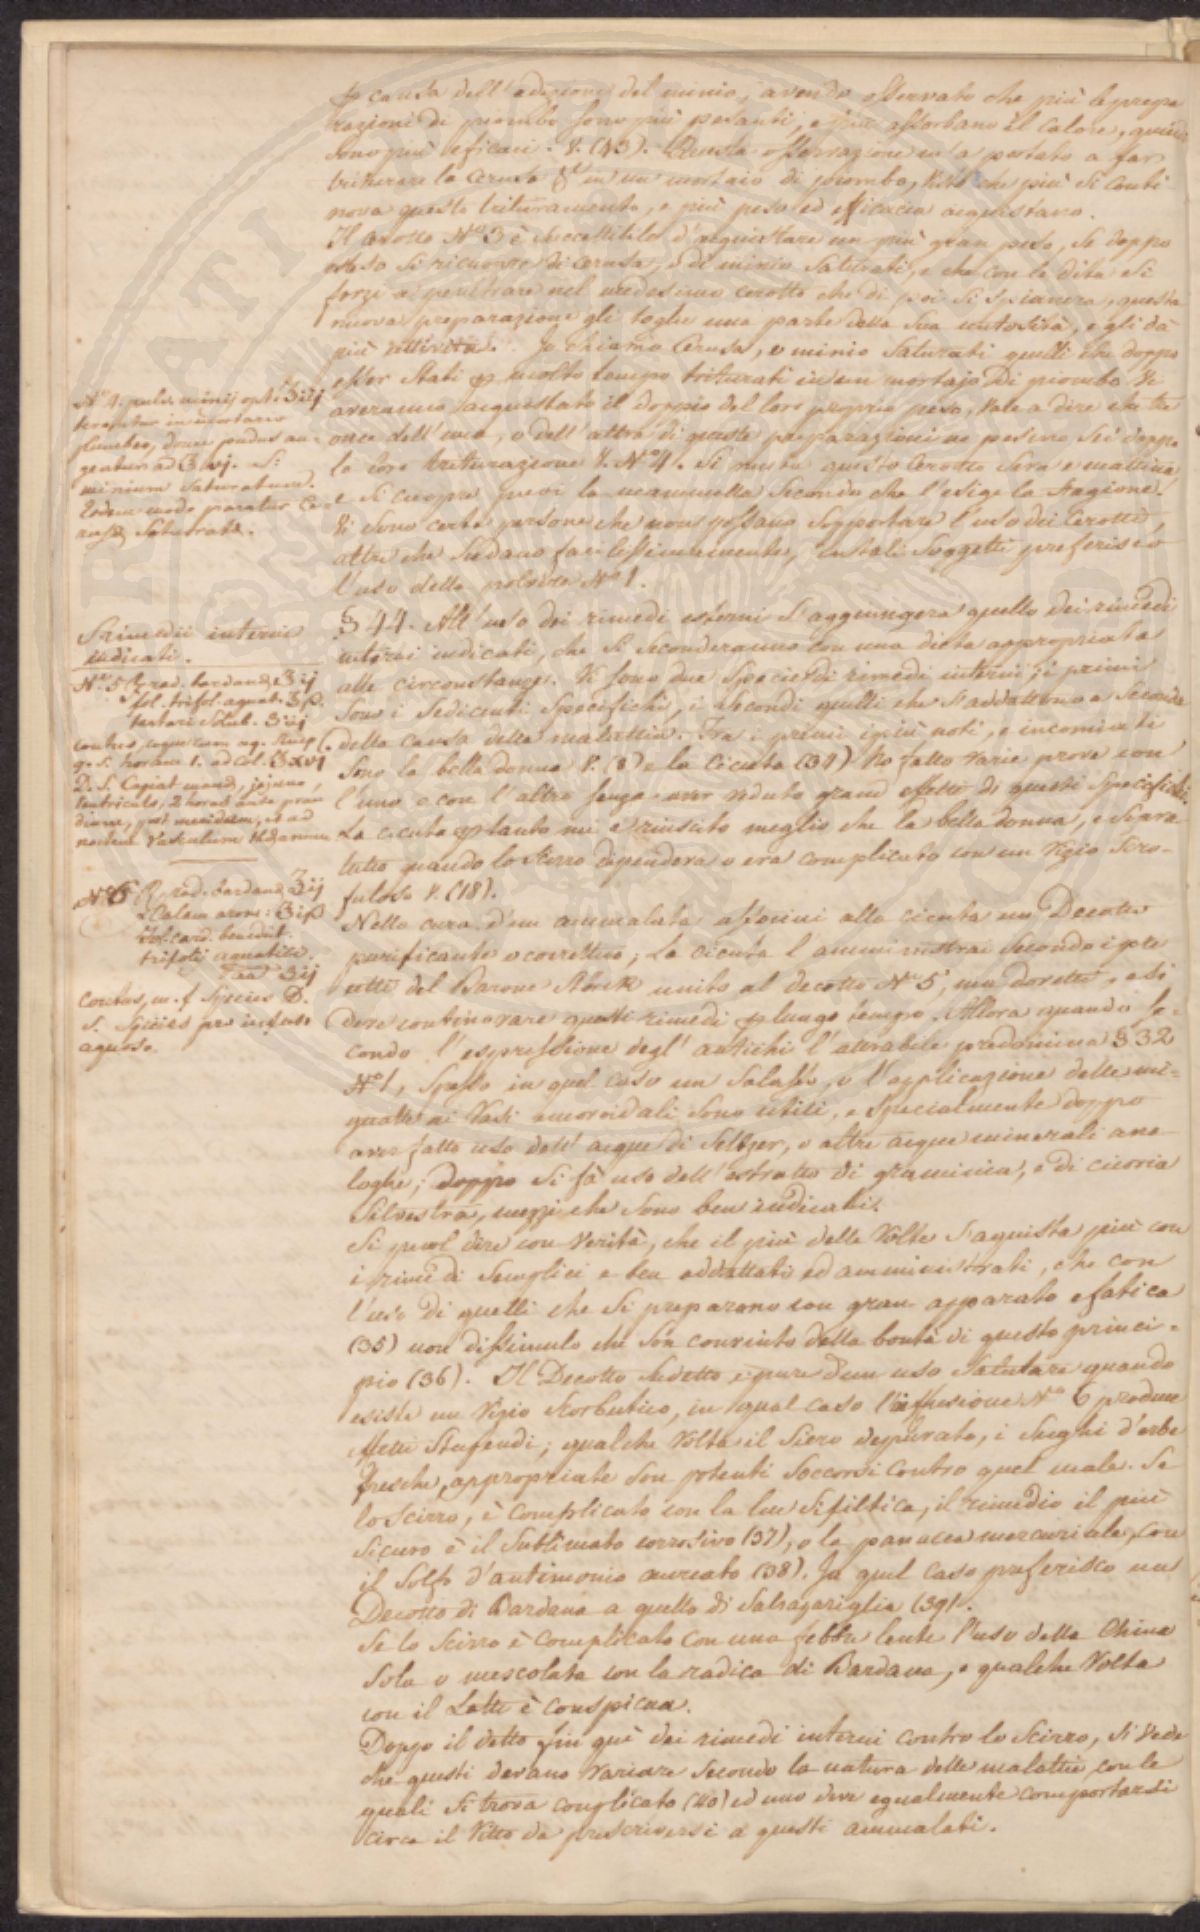 causa dell'adizione del minio, avendo osservato che più le prepa
razioni di piombo sono più pesanti, e più assorbano il calore, quindi
sono più eficaci. V. (43). Questa osservazione m'a portato a far
triturare la cerusa in un mortaio di piombo, visto che più si conti
nova questo trituramento, e più peso ed efficacia acquistano.
Il Cerotto N.º 3 è suscettibile d'acquistare un più gran peso, se doppo
steso si ricuopre di cerusa, o di minio saturati, e che con le dita si
forzi a penetrare nel medesimo cerotto che di poi si spianera, questa
nuova preparazione gli toglie una parte della sua untosità, e gli dà
più attività. Io chiamo Cerusa, o minio saturati quelli che doppo
esser stati molto tempo triturati in un mortajo di piombo
averanno acquistato il doppio del loro proprio peso, vale a dire che tre
once dell'una, o dell'altra di queste preparazioni ne pesino sei doppo
la loro triturazione V. N.º 4. Si muta questo Cerotto sera e mattina
e si cuopre poi la mammella secondo che l'esige la stagione.
Vi sono certe persone che non possano sopportare l'uso dei Cerotti,
altre che sudano facilissimamente, in tali soggetti preferisco
l'uso della polvere N.º 1.
N.º 4. pulv. minij opt. ℥iij
teratur in mortario
plumbeo, donec pondus au=
geatur ad ℥vj. S:
minium Saturatum.
Eodem modo paratur Ce=
russa Saturata.
§ 44. All'uso dei rimedi esterni s'aggiungera quello dei rimedi
interni indicati, che si seconderanno con una dieta appropriata
alle circonstanze. Vi sono due specie di rimedi interni; i primi
sono i sedicenti specifichi, i secondi quelli che s'addattono a seconda
della causa della malattia. Fra i primi i più noti, e incominciati
sono la bella donna V. (8) e la Cicuta (34) Ho fatto varie prove con
l'uno e con l'altro senza aver veduto grand effetto di questi specifichi.
La cicuta tanto mi è riuscito meglio che la bella donna, e sopra
tutto quando lo Scirro dependeva o era complicato con un Vizio Scro-
fuloso V. (18).
Srimedii interni
indicati.
N.º 5 ℞ rad. bardanæ ℥ij
fol. trifol. aquat. ℥ß.
tartari Solub. ʒiij
contus, coque cum aq. 
q. s. horam 1. ad Col. ℥xvj
D. S. Capiat mane, jejuno
ventriculo, 2 horas ante pran
dium, post meridiem, et ad
noctem Vasculum 
Nella cura d'un ammalata associai alla cicuta un Decotto
purificante o correttivo; La cicuta l'amministrai secondo i pre
cetti del Barone Störck unito al decotto N.º 5, e si
deve continovare questi rimedi lungo tempo. Allora quando se-
condo l'espressione degl'antichi l'atrabile predomina § 32
N.º 1, spesso in quel caso un Salasso, o l'applicazione delle mi=
gnatte ai Vasi emoroidali sono utili, e specialmente doppo
aver fatto uso dell'acque di Seltzer, o altre acque minerali ana
loghe; doppo si fà uso dell'estratto di graminia, e di cicoria
silvestra, mezzi che sono ben indicati.
N.º 6 ℞ rad. bardanæ ℥ij
Calam arom: ℥iß
Fol. card. benedict.
trifolij aquatici.
āā ℥ij
Contus, m. f. Species D.
S. Species pro infuso
aquoso.
Si puol dire con Verità, che il più delle Volte s'aquista più con
i rimedi semplici e ben addattati ed amministrati, che con
l'uso di quelli che si preparano con gran apparato e fatica
(35) non dissimulo che son convinto della bontà di questo princi=
pio (36). Il Decotto sudetto è pure d'un uso salutare quando
esiste un Vizio Scorbutico, in qual caso l'infusione N.º 6 produce
effetti stupendi; qualche Volta il siero depurato, i sughi d'erbe
fresche, appropriate son potenti soccorsi contro quel male. Se
lo scirro, è complicato con la lue sifilitica, il rimedio il più
sicuro è il sublimato corrosivo (37), o la panacea mercuriale, con
il solfo d'antimonio aureato (38). In quel caso preferisco un
Decotto di Bardana a quello di Salsapariglia (39).
Se lo Scirro è complicato con una febbre lente l'uso della China
sola o mescolata con la radica di Bardana, e qualche Volta
con il Latte è conspicua.
Doppo il detto fin quì dei rimedi interni contro lo Scirro, si vede
che questi devano variare secondo la natura delle malattie con le
quali si trova complicato (40) ed uno deve egualmente comportarsi
circa il Vitto da prescriversi a questi ammalati.